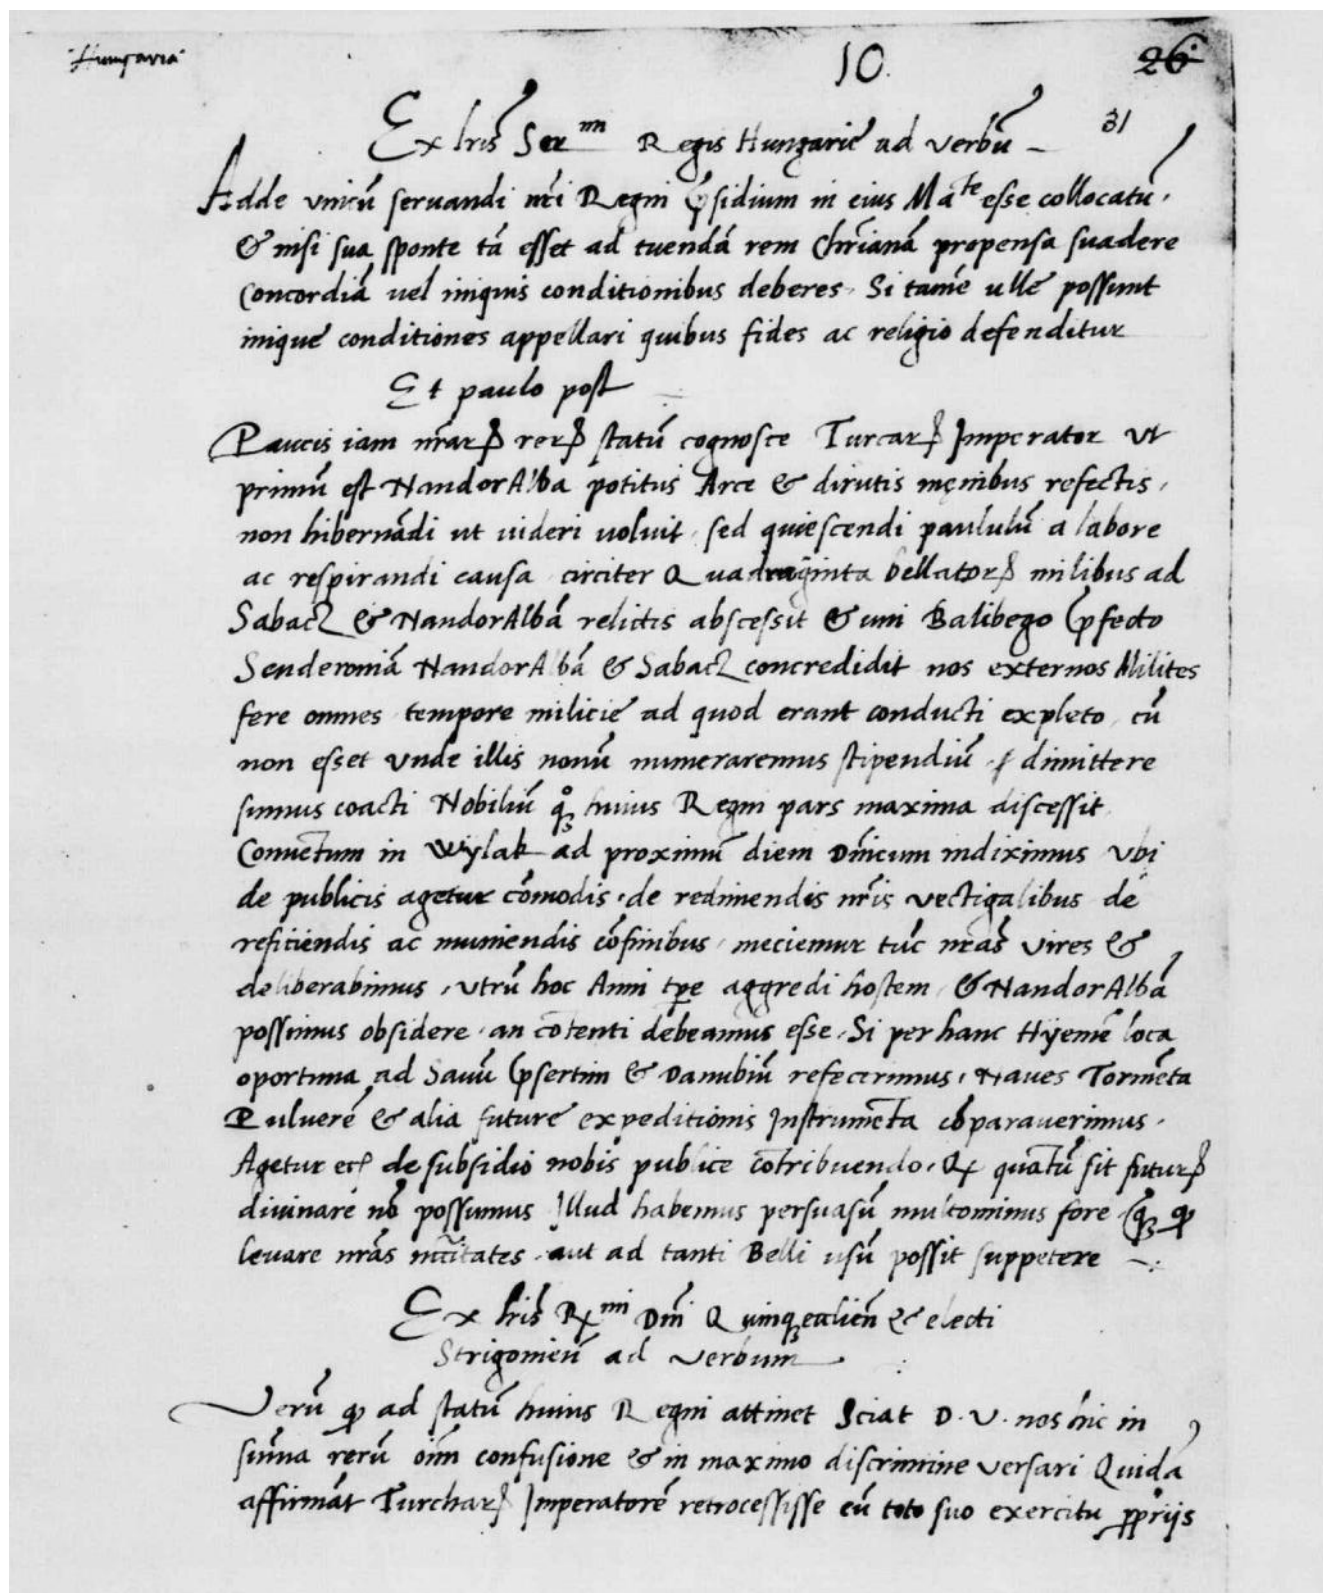 Hungaria
10.
26
31
Ex lris Ser.mi Regis Hungarie ad verbū
Adde vnicū seruandi nr̄i Regni p̄sidium in eius Ma.te esse collocatū.
& nisi sua sponte tā esset ad tuendā rem Chr̄ianā propensa suadere
Concordiā uel iniquis conditionibus deberes. Si tamē ulle possunt
inique conditiones appellari quibus fides ac religio defenditur
Et paulo post
Paucis iam nr̄arꝝ rerꝝ statū cognosce Turcarꝝ Imperator vt
primū est NandorAlba potitus Arce & dirutis męnibus refectis,
non hibernādi ut uideri uoluit, sed quiescendi paululū a labore
ac respirandi causa circiter Quadraginta bellatorꝝ milibus ad
Sabacz & NandorAlbā relictis abscessit & uni Balibego p̄fecto
Senderoniā NandorAlbā & Sabacz concredidit nos externos Milites
fere omnes tempore milicie ad quod erant conducti expleto, cū
non esset vnde illis nouū numeraremus stipendiū dimittere
sumus coacti Nobiliū qͦꝫ huius Regni pars maxima discessit
Conuētum in Wÿlak ad proximū diem Dn̄icum indiximus vbi
de publicis agetur cōmodis, de redimendis nr̄is vectigalibus de
reficiendis ac muniendis cōfinibus, meciemur tūc nr̄as vires &
deliberabimus, vtrū hoc Anni tp̄e aggredi hostem & NandorAlbā
possimus obsidere, an cōtenti debeamus esse, Si per hanc Hÿemē loca
oportuna ad Sauū p̄sertim & Danubiū refecerimus, Naues Tormēta
Puluerē & alia future expeditionis Instrumēta cōparauerimus.
Agetur et de subsidio nobis publice cōtribuendo, Qꝫ quātū sit futurꝝ
diuinare nō possumus Illud habemus persuasū multominus fore qꝫ qd
leuare nr̄as nccītates aut ad tanti Belli usū possit suppetere
Ex lris R.mi Dn̄i Quinqꝫecclien̄ & electi
Strigonień ad verbum
Verū qd ad statū huius Regni attinet Sciat D. V. nos hic in
sūma rerū oīm confusione & in maximo discrimine versari Quidā
affirmāt Turcharꝝ Imperatorē retrocessisse cū toto suo exercitu ꝓprijs